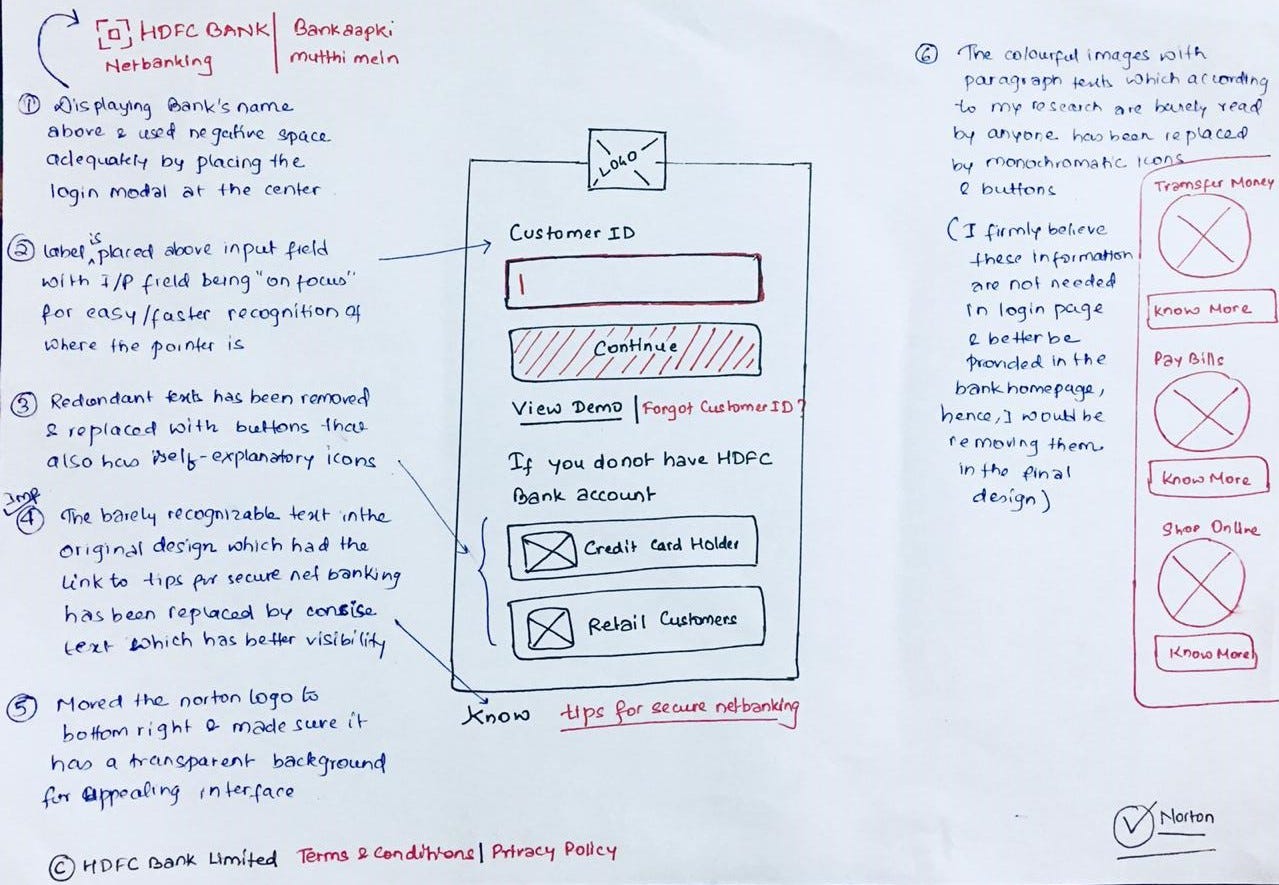 HDFC BANK | Bankaapki
Netbanking | mutthi mein
① Displaying Bank's name
above & used negative space
adequately by placing the
login modal at the center
② Label is placed above input field
with I/P field being "on focus"
for easy/faster recognition of
where the pointer is
③ Redundant texts has been removed
& replaced with buttons that
also has self-explanatory icons
Imp
④ The barely recognizable text in the
original design which had the
link to tips for secure net banking
has been replaced by consise
text which has better visibility
⑤ Moved the norton logo to
bottom right & made sure it
has a transparent background
for appealing interface
LOGO
Customer ID
Continue
View Demo | Forgot Customer ID?
If you do not have HDFC
Bank account
Credit Card Holder
Retail Customers
Know tips for secure netbanking
⑥ The colourful images with
paragraph texts which according
to my research are barely read
by anyone has been replaced
by monochromatic icons
& buttons
(I firmly believe
these information
are not needed
in login page
& better be
provided in the
bank homepage,
hence, I would be
removing them
in the final
design)
Transfer Money
Know More
Pay Bills
Know More
Shop Online
Know More
Norton
© HDFC Bank Limited Terms & Conditions | Privacy Policy